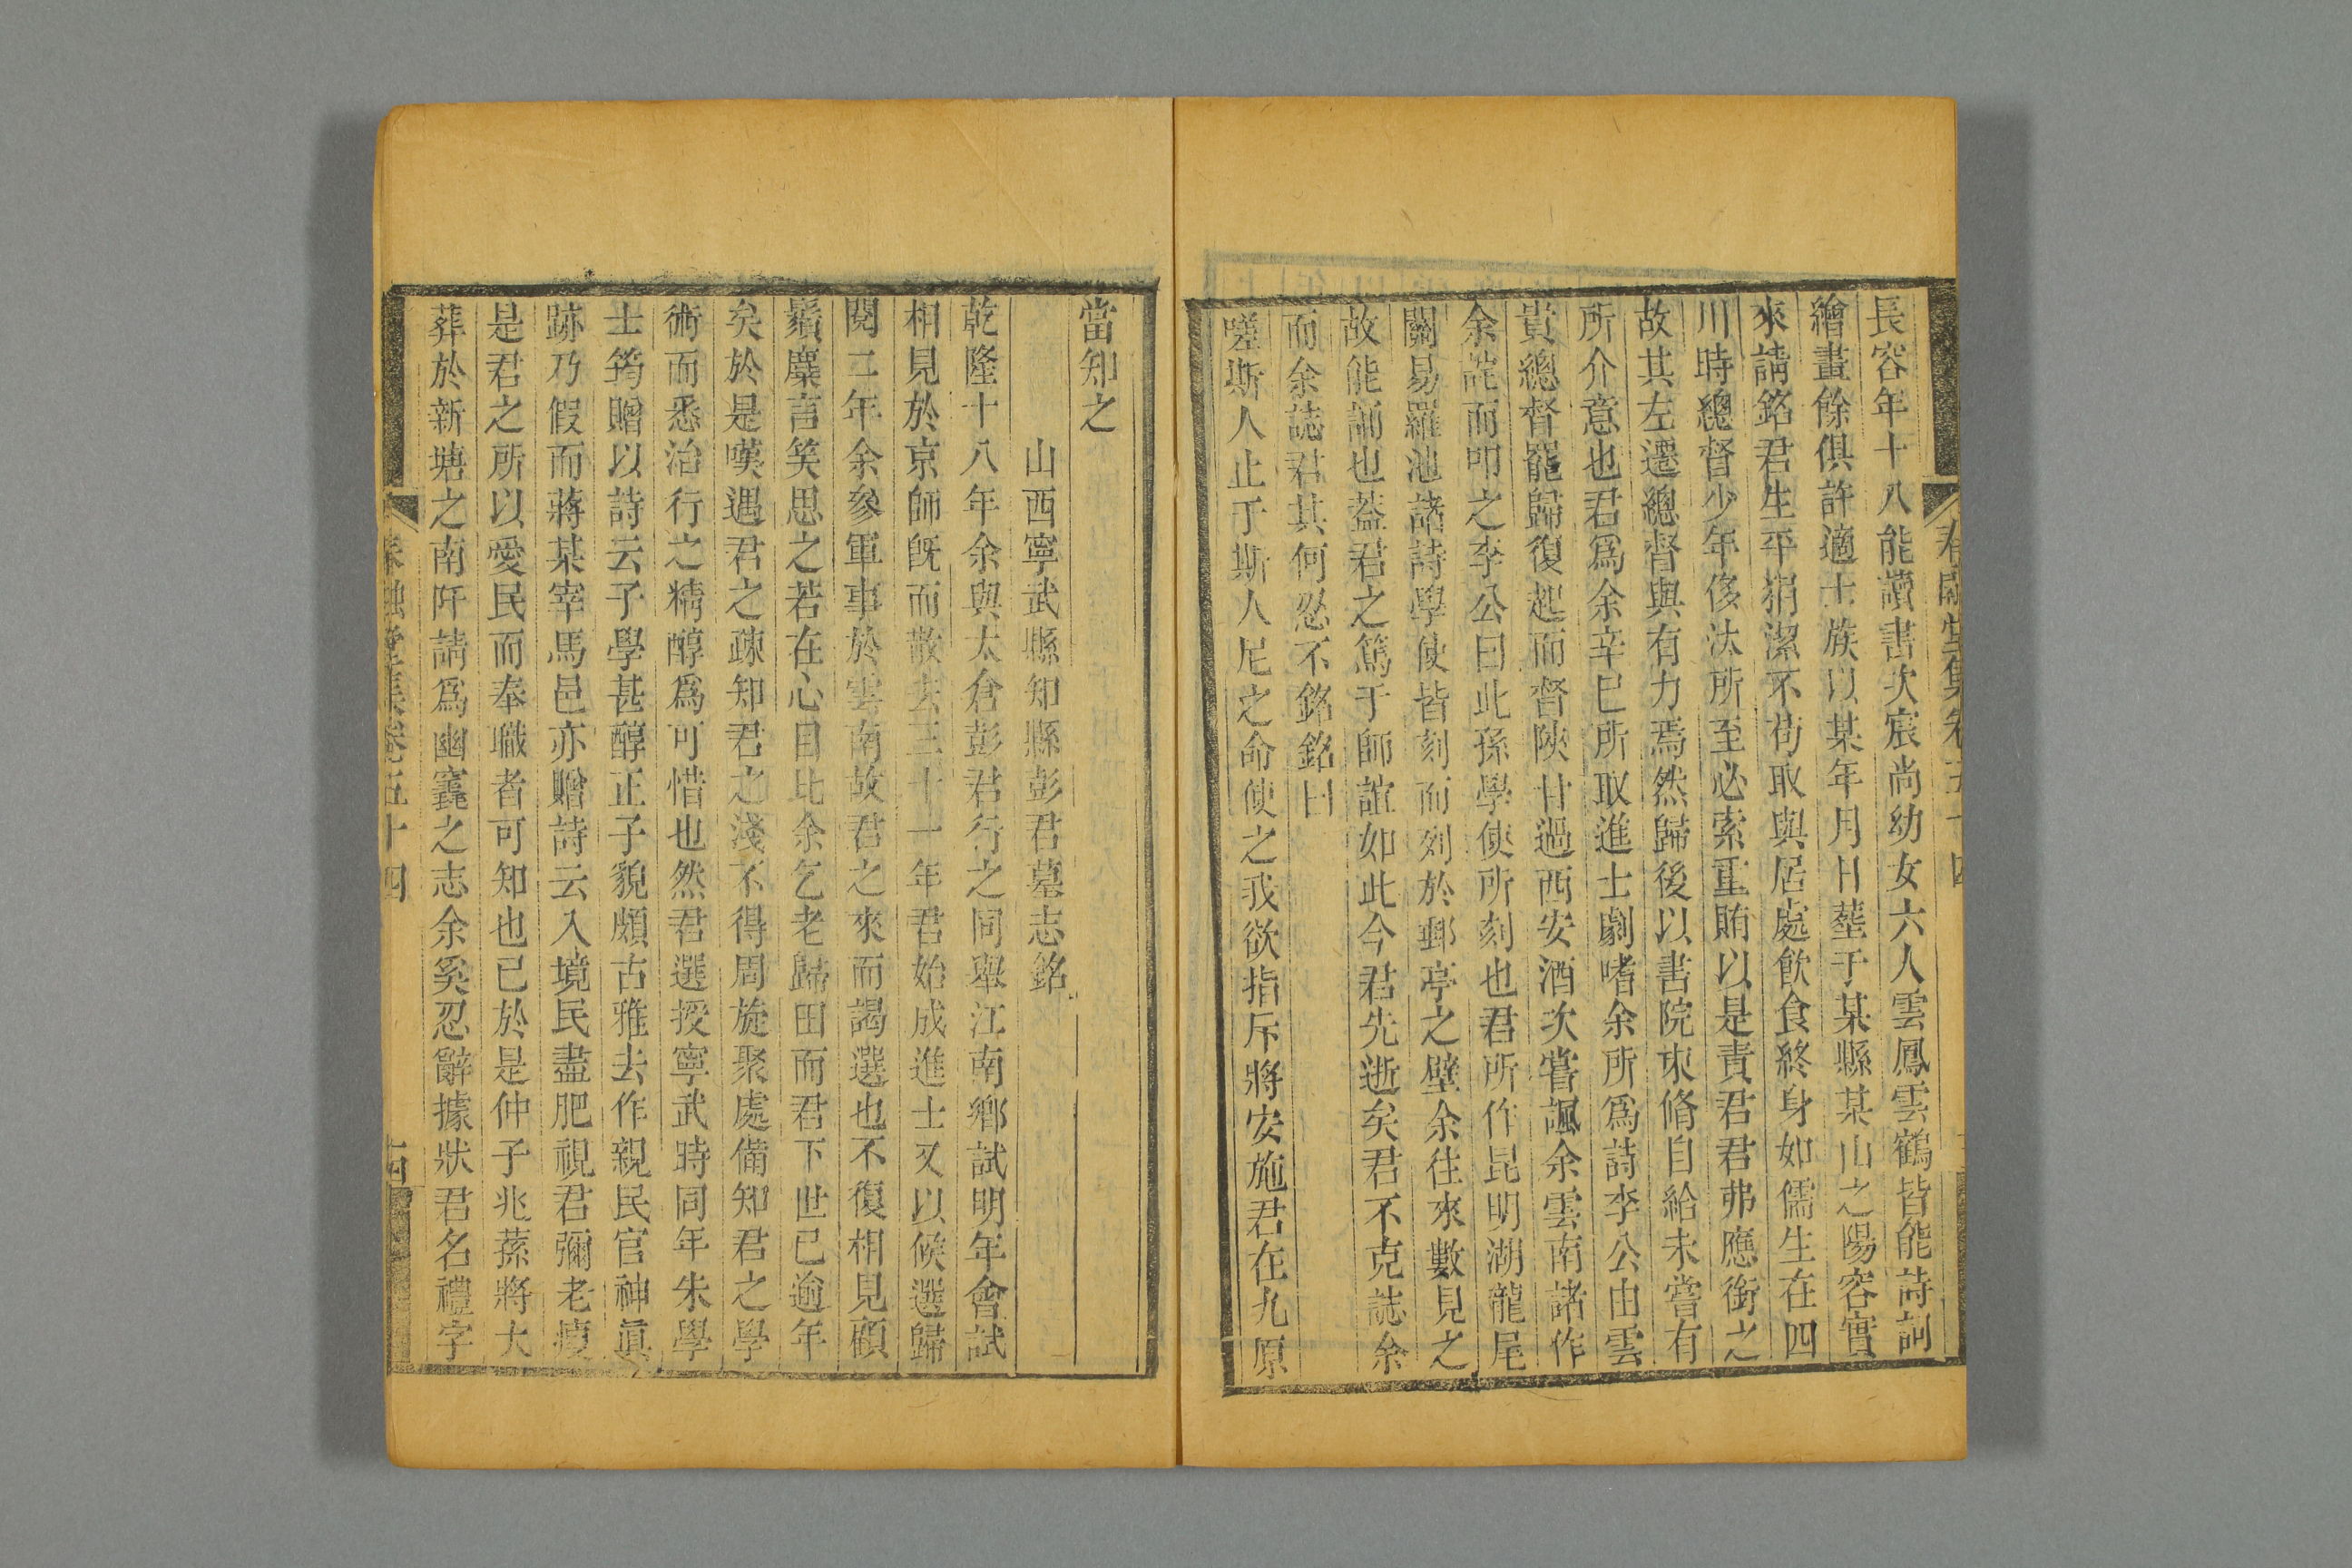 長容年十八能讀書次宸尚幼女六人雲鳳雲鶴皆能詩詞
繪畫餘俱許適士族以某年月日塟于某縣某山之陽容實
來請銘君生平狷潔不苟取與居處飲食終身如儒生在四
川時總督少年侈汰所至必索重賄以是責君君弗應銜之
故其左遷總督與有力焉然歸後以書院束脩自給未嘗有
所介意也君爲余辛巳所取進士劇嗜余所爲詩李公由雲
貴總督罷歸復起而督陝甘過西安酒次嘗諷余雲南諸作
余詫而叩之李公曰此孫學使所刻也君所作昆明湖龍尾
關易羅池諸詩學使皆刻而列於郵亭之壁余往來數見之
故能誦也葢君之篤于師誼如此今君先逝矣君不克誌余
而余誌君其何忍不銘銘曰
嗟斯人止于斯人尼之命使之我欲指斥將安施君在九原
春融堂集卷五十四
當知之
山西寧武縣知縣彭君墓志銘
乾隆十八年余與太倉彭君行之同舉江南鄉試明年會試
相見於京師旣而散去三十一年君始成進士又以候選歸
閱二年余參軍事於雲南故君之來而謁選也不復相見顧
鬚麋言笑思之若在心目比余乞老歸田而君下世已逾年
矣於是嘆遇君之疎知君之淺不得周旋聚處備知君之學
術而悉治行之精醇爲可惜也然君選授寧武時同年朱學
士筠贈以詩云子學甚醇正子貌頗古雅去作親民官神眞
跡乃假而蔣某宰馬邑亦贈詩云入境民盡肥視君彌老瘦
是君之所以愛民而奉職者可知也已於是仲子兆蓀將大
葬於新塘之南阡請爲幽竁之志余奚忍辭據狀君名禮字
春融堂集卷五十四
十四